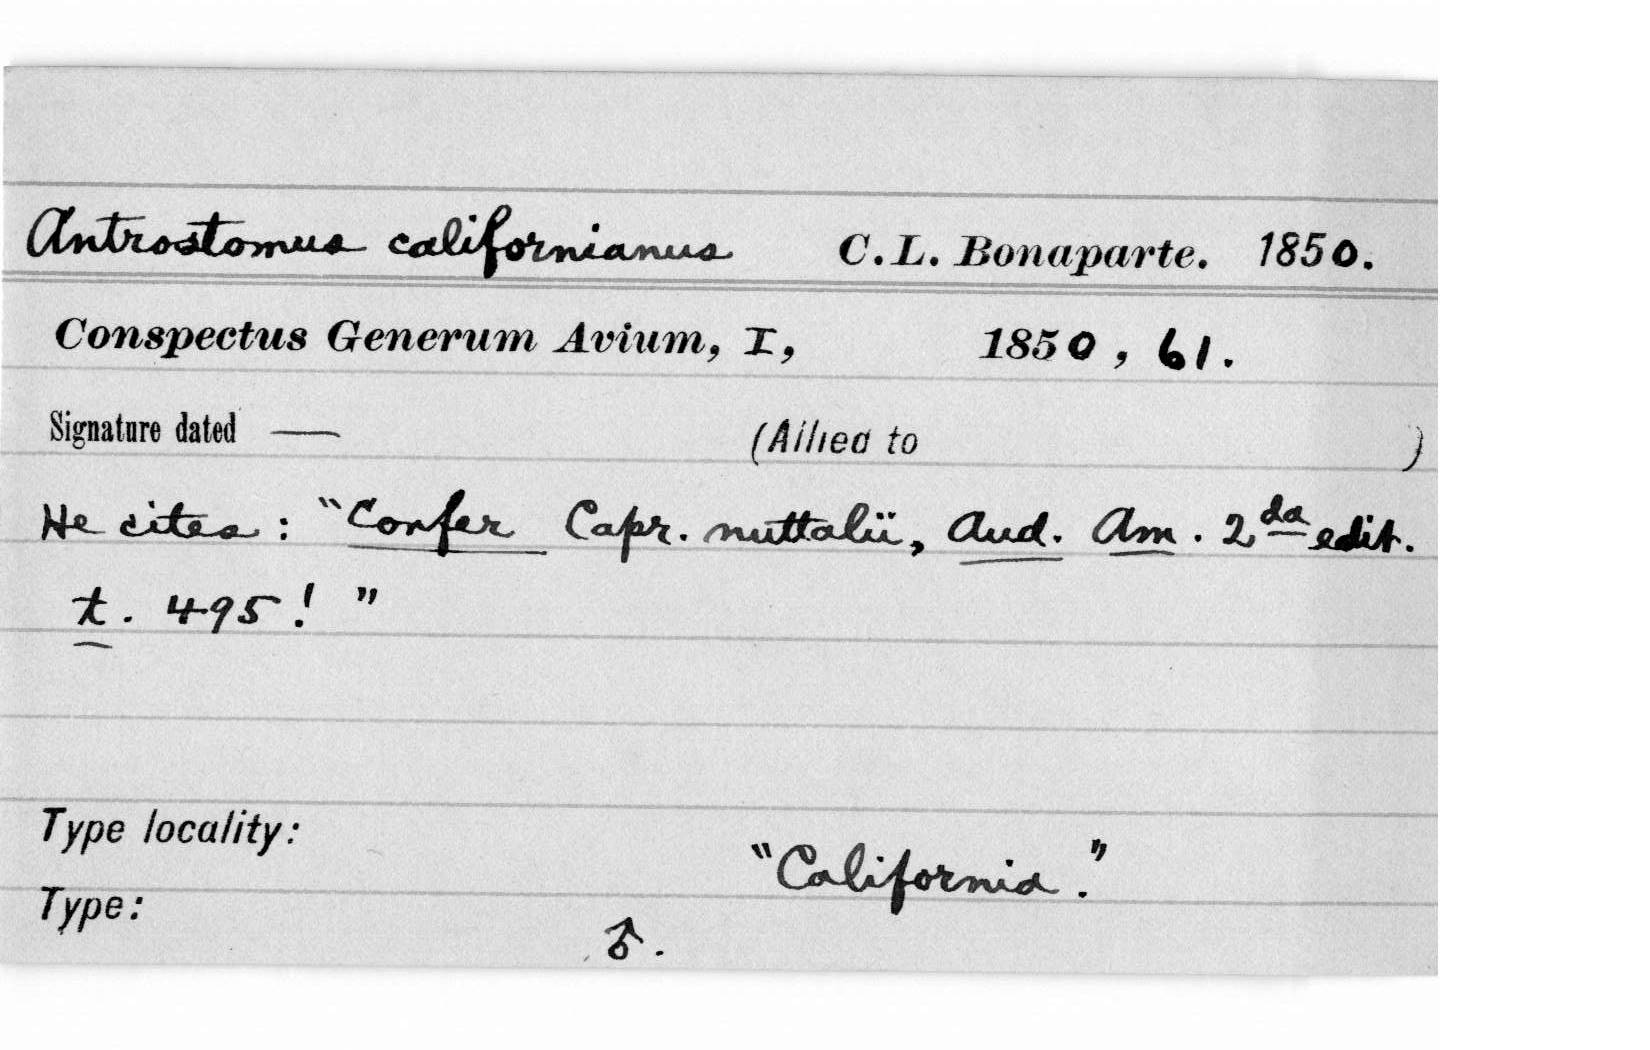 Antrostomus californianus C.L. Bonaparte. 1850.
Conspectus Generum Avium, I, 1850, 61.
Signature dated — (Allied to )
He cites: "Confer Capr. nuttalii, Aud. Am. 2da edit.
t. 495! "
Type locality:
"California."
Type:
♂.